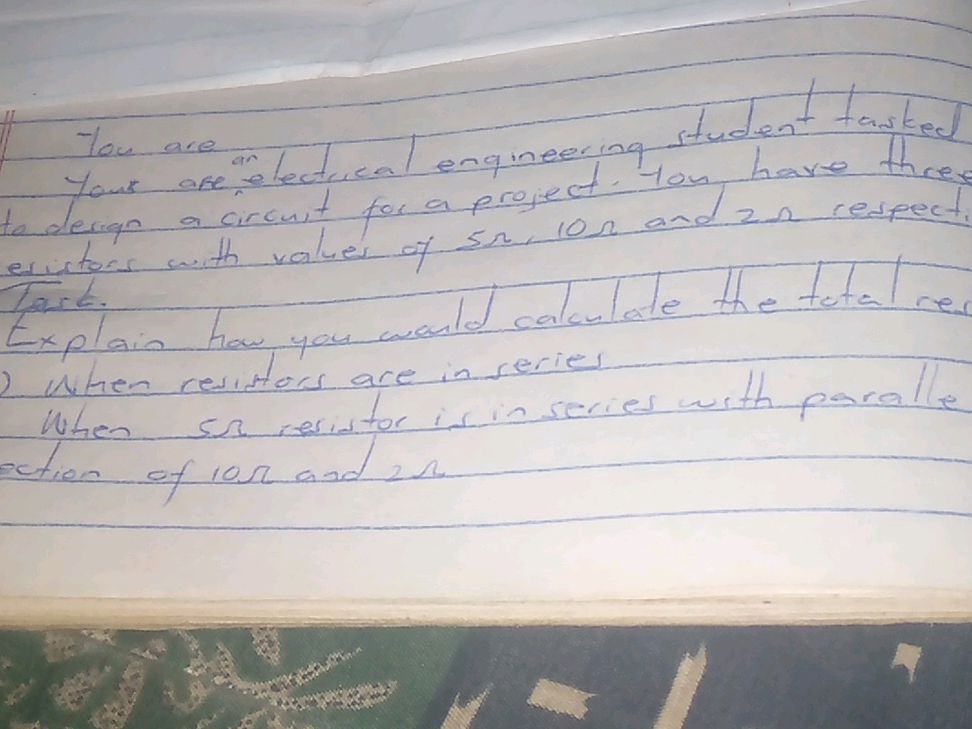 You are
Your are an electrical engineering student tasked
to design a circuit for a project. You have three
esistors with values of 5Ω, 10Ω and 2Ω respecti
Task.
Explain how you would calculate the total res
) When resistors are in series
When 5Ω resistor is in series with paralle
ection of 10Ω and 2Ω